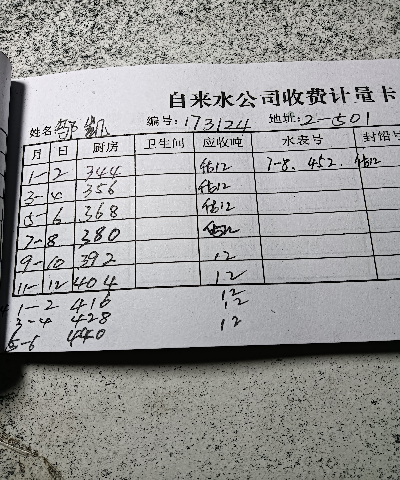 自来水公司收费计量卡
姓名 邹凯 编号:173124 地址:2-501
月 日 厨房 卫生间 应收吨 水表号 封铅号
1-2 344 估12 7-8. 452. 估12
3-4 356 估12
5-6 368 估12
7-8 380 估12
9-10 392 12
11-12 404 12
1-2 416 12
3-4 428 12
5-6 440 12